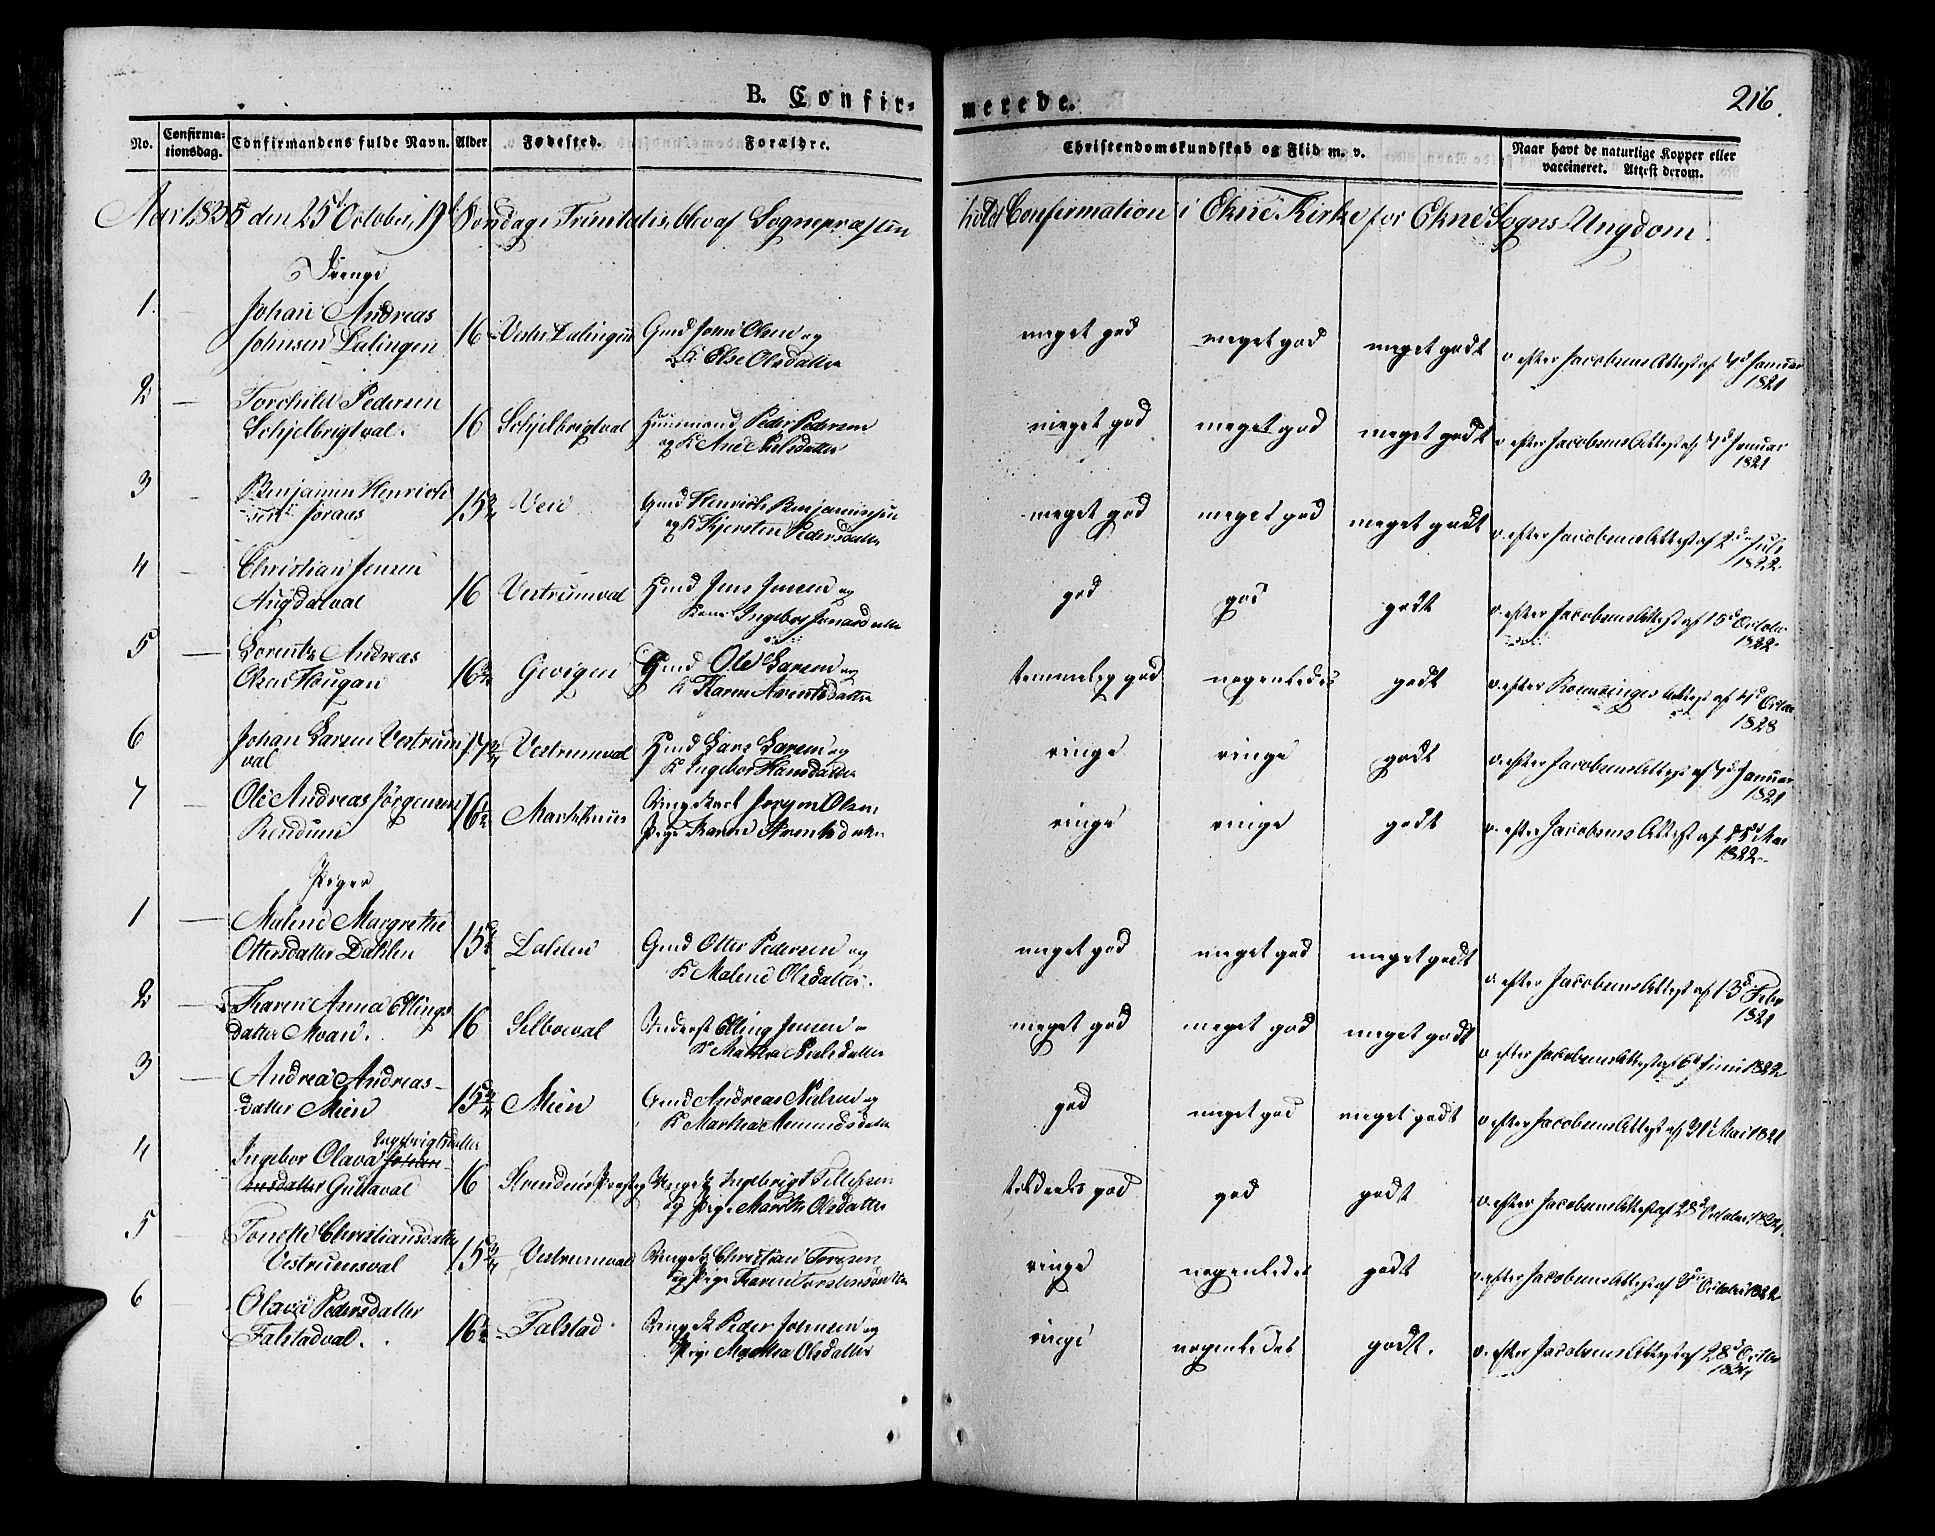 B. Confir-
merede.
216.
No.
Confirma-
tionsdag.
Confirmandens fulde Navn.
Alder
Fødested.
Forældre.
Christendomskundskab og Flid m. v.
Naar havt de naturlige Kopper eller
vaccineret. Attest derom.
Aar 1835 den 25d October, 19d Søndag Trinitatis, blev af Sognepræsten
hold Confirmation i Ekne Kirke for Ekne Sogns Ungdom.
Drenge
1. Johan Andreas
Johnsen Lalingen 16 Vester Lalingen Gmd John Olsen og
K. Else Olsdatter meget god meget god meget godt v. efter Jacobsens Attest af 4d Januar
1821
2 — Torchild Pedersen
Schjelbrigtval. 16 Schjelbrigtval Huusmand Peder Pedersen
og K Ane Nielsdatter meget god meget god meget godt v. efter Jacobsens Attest af 4d Januar
1821
3 — Benjamin Henrich
sen Joraas 15¾ Veie Gmd Henrich Benjaminsen
og K Kjersten Pedersdatter meget god meget god meget godt v. efter Jacobsens Attest af 2d Juli
1822
4 — Christian Jensen
Augdalval 16 Vestrumval Hmd Jens Jensen og
Kone Ingebor Jonasdatter god god godt v. efter Jacobsens Attest af 15d October
1822
5 — Lorentz Andreas
Olsen Hougan 16¾ Gevigen Gmd Ole Larsen og
K Karen Arentsdatter temmelig god nogenledes godt v. efter Attest af 4d October
1828
6 Johan Larsen Vestrum
val 17¾ Vestrumval Hmd Lars Larsen og
K Ingebor Hansdatter ringe ringe godt v. efter Jacobsens Attest af 4d Januar
1821
7 Ole Andreas Jörgensen
16½ Ungekarl Jörgen Olsen
Pige Karen ringe ringe godt v. efter Jacobsens Attest af 25d Mai
1822
Piger
1 — Malene Margrethe
Ottersdatter Dahlen 15¾ Dahlen Gmd Otter Pedersen og
K Malene Olsdatter. meget god meget god meget godt v. efter Jacobsens Attest af 13d Febr
1821
2 — Karen Anna Ellings
datter Moan. 16 Selboeval Elling Jensen
K Marthea Nielsdatter meget god meget god meget godt v. efter Jacobsens Attest af 6d Juni 1822
3 — Andrea Andreas-
datter Mien 15¾ Mien Gmd Andreas Nielsen og
K Marthea Amundsdatter god meget god meget godt v. efter Jacobsens Attest af 31d Mai 1821
4 Ingebrigtsdatter
Ingebor Olava Johan-
nesdatter Gullaval 16 Ungk Ingebrigt Tellefsen
og Pige Marthe Olsdatter tildeels god god godt v. efter Jacobsens Attest af 28d October 1824
5 — Tonette Christiansdatter
Vestrumsval 15¾ Vestrumval Ungk Christian Toresen
og Pige Karen Torstensdatter ringe nogenledes godt v. efter Jacobsens Attest af October 1822
6 — Olava Pedersdatter
Falstadval. 16½ Falstad Ungk Peder Johnsen og
Pige Marthea Olsdatter ringe nogenledes godt. v. efter Jacobsens Attest af 28d October
1824